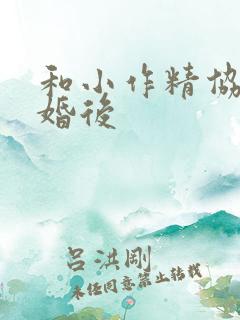 和小作精協
婚後
呂洪剛
未经同意禁止转载